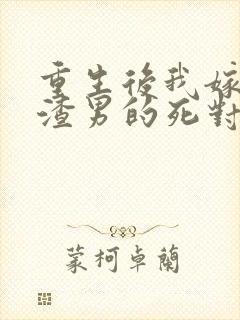 重生後我嫁
渣男的死對
蒙柯卓蘭